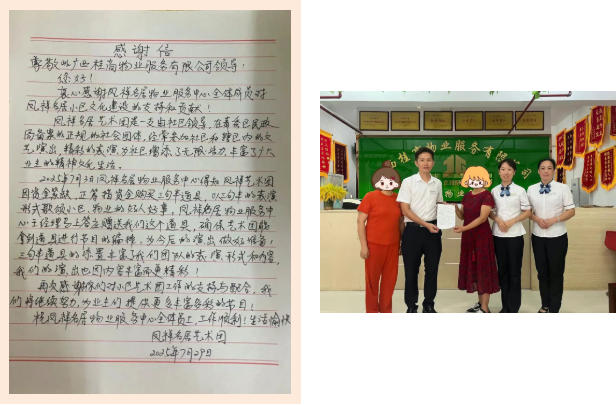 感谢信
尊敬的广西桂高物业服务有限公司领导：
您好！
衷心感谢凤祥名居物业服务中心全体成员对
凤祥名居小区文化建设的支持和贡献！
凤祥名居艺术团是一支由社区领导，在青秀区民政
局备案的正规的社会团体，经常参加社区和辖区内的文
艺演出，精彩的表演为社区增添了无限活力，丰富了广大
业主的精神文化生活。
2025年7月3日凤祥名居物业服务中心得知凤祥艺术团
因资金紧缺，正筹措资金购买三句半道具，以三句半的表演
形式歌颂小区、物业的好人好事，凤祥名居物业服务中
心王经理马上答应赠送我们这个道具，确保艺术团能
拿到道具进行节目的排练，为今后的演出做好准备，
三句半道具的添置丰富了我们团队的表演形式和内容，
我们的演出也因内容丰富而更精彩！
再次感谢你们对小区艺术团工作的支持与配合，我
们将继续努力，为业主们提供更多丰富多彩的节目！
祝凤祥名居物业服务中心全体员工，工作顺利！生活愉快
凤祥名居艺术团
2025年7月29日
桂高物业服务有限公司